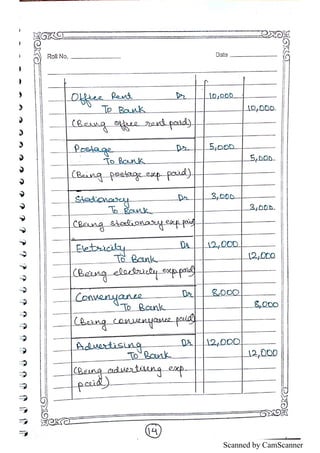 Roll No. Date
Office Rent Dr 10,000
To Bank 10,000
(Being office rent paid)
Postage Dr. 5,000
To Bank 5,000.
(Being postage exp. paid)
Stationary Dr 3,000
To Bank 3,000.
(Being stationary exp. paid
Eletricity Dr 12,000
To Bank 12,000
(Being electricity exp. paid)
Convenyance Dr 8,000
To Bank 8,000
(Being convenyance paid)
Advertising Dr 12,000
To Bank 12,000
(Being advertising exp.
paid)
14
Scanned by CamScanner